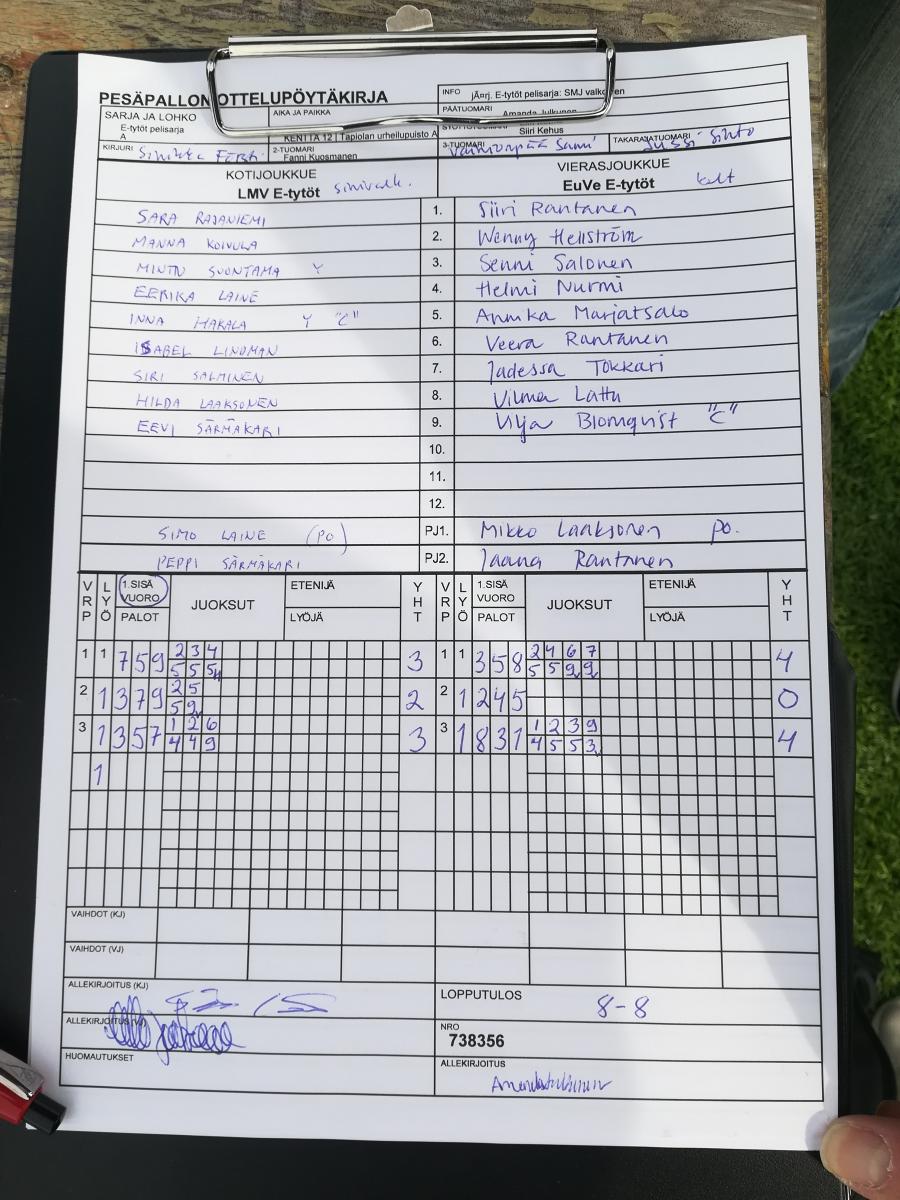 PESÄPALLON OTTELUPÖYTÄKIRJA
INFO jÃ¤rj. E-tytöt pelisarja: SMJ valko
SARJA JA LOHKO
AIKA JA PAIKKA
PÄÄTUOMARI Amanda Julkunen
E-tytöt pelisarja
A
KENTTÄ 12 | Tapiolan urheilupuisto A
Siiri Kehus
KIRJURI
2-TUOMARI
Fanni Kuosmanen
3-TUOMARI Sami
TAKARAJATUOMARI Jussi
KOTIJOUKKUE
VIERASJOUKKUE
LMV E-tytöt sinivalk.
EuVe E-tytöt kelt
SARA RAJANIEMI 1. Siiri Rantanen
MANNA KOIVULA 2. Wenny Hellström
MINTU SUONTAMA Y 3. Senni Salonen
EERIKA LAINE 4. Helmi Nurmi
INNA HAKALA Y "C" 5. Annika Marjatsalo
ISABEL LINDMAN 6. Veera Rantanen
SIRI SALMINEN 7. Jadessa Tokkari
HILDA LAAKSONEN 8. Vilma Lattu
EEVI SÄRMÄKARI 9. Vilja Blomqvist "C"
10.
11.
12.
SIMO LAINE (PO) PJ1. Mikko Laaksonen po.
PEPPI SÄRMÄKARI PJ2. Jaana Rantanen
VRP LYÖ 1.SISÄ VUORO PALOT JUOKSUT ETENIJÄ LYÖJÄ YHT VRP LYÖ 1.SISÄ VUORO PALOT JUOKSUT ETENIJÄ LYÖJÄ YHT
1 1 7 5 9 2 3 4 3 1 1 3 5 8 2 4 6 7 4
5 5 5 5 5 9 9
2 1 3 7 9 2 5 2 2 1 2 4 5 0
5 9
3 1 3 5 7 1 2 6 3 3 1 8 3 1 1 2 3 9 4
4 4 9 4 5 5 3
1
VAIHDOT (KJ)
VAIHDOT (VJ)
ALLEKIRJOITUS (KJ)
LOPPUTULOS 8-8
ALLEKIRJOITUS (VJ)
NRO
738356
HUOMAUTUKSET
ALLEKIRJOITUS